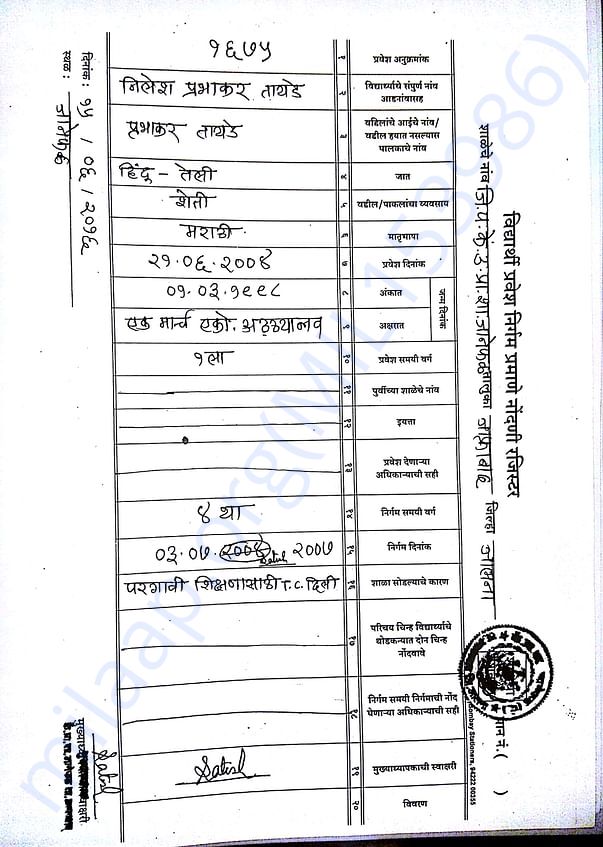 विद्यार्थी प्रवेश निर्गम प्रमाणे नोंदणी रजिस्टर
शाळेचे नांव जि.प.कें.उ.प्रा.शा.जानेफळ तालुका जाफ्राबाद जिल्हा जालना
पान नं. ( )
१ प्रवेश अनुक्रमांक १६७५
२ विद्यार्थ्याचे संपुर्ण नांव आडनांवासह निलेश प्रभाकर तायडे
३ वडिलांचे आईचे नांव/ वडील हयात नसल्यास पालकाचे नांव प्रभाकर तायडे
४ जात हिंदू - तेली
५ वडील/पाकलांचा व्यवसाय शेती
६ मातृभाषा मराठी
७ प्रवेश दिनांक २१.०६.२००४
जन्म दिनांक
८ अंकात ०१.०३.१९९८
९ अक्षरात एक मार्च एको. अठ्ठयानव
१० प्रवेश समयी वर्ग १ला
११ पुर्वीच्या शाळेचे नांव
१२ इयत्ता
१३ प्रवेश देणाऱ्या अधिकाऱ्याची सही
१४ निर्गम समयी वर्ग ४ था
१५ निर्गम दिनांक ०३.०७.२००४ २००७
Satish
१६ शाळा सोडल्याचे कारण परगावी शिक्षणासाठी T.C. दिली
१७ परिचय चिन्ह विद्यार्थ्याचे थोडकन्यात दोन चिन्ह नोंदवावे
१८ निर्गम समयी निर्गमाची नोंद घेणाऱ्या अधिकाऱ्याची सही
१९ मुख्याध्यापकाची स्वाक्षरी Satish
२० विवरण
दिनांक : १५ / ०६ / २०१६
स्थळ : जानेफळ
Satish
Bombay Stationers, 94222 00355
milaap.org(MIL153986)